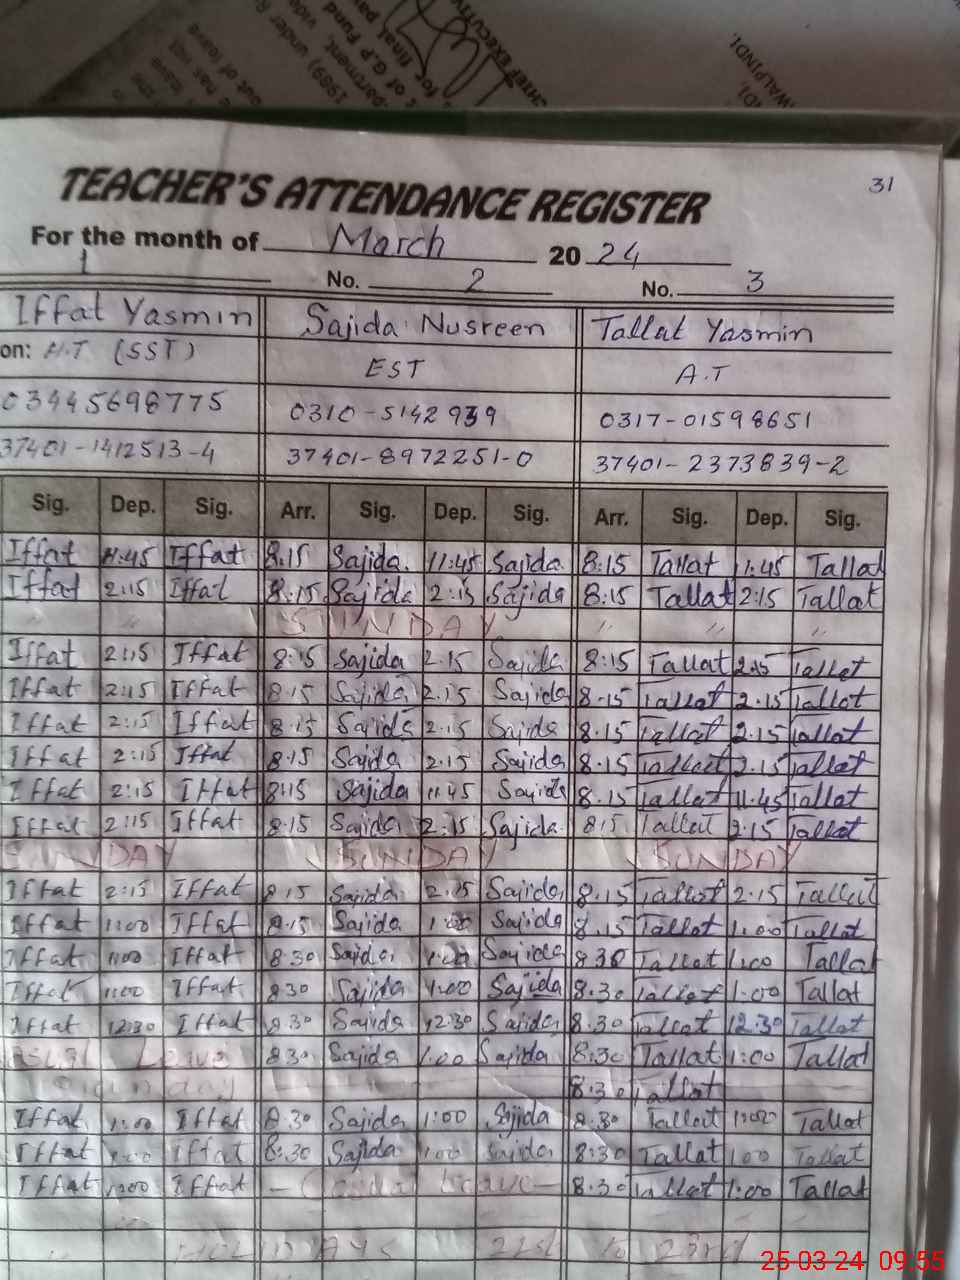 WALPINDI.
CHIEF EXECUTIV
TEACHER'S ATTENDANCE REGISTER 31
For the month of March 2024
1 No. 2 No. 3
Iffat Yasmin Sajida Nusreen Tallat Yasmin
on: H.T (SST) EST A.T
03445698775 0310-5142939 0317-01598651
37401-1412513-4 37401-8972251-0 37401-2373839-2
Sig. Dep. Sig. Arr. Sig. Dep. Sig. Arr. Sig. Dep. Sig.
Iffat 11:45 Iffat 8:15 Sajida 11:45 Sajida 8:15 Tallat 11:45 Tallat
Iffat 2:15 Iffat 8:15 Sajida 2:15 Sajida 8:15 Tallat 2:15 Tallat
" " SUNDAY " " "
Iffat 2:15 Iffat 8:15 Sajida 2.15 Sajida 8:15 Tallat 2:15 Tallat
Iffat 2:15 Iffat 8.15 Sajida 2.15 Sajida 8.15 Tallat 2.15 Tallat
Iffat 2:15 Iffat 8.15 Sajida 2.15 Sajida 8.15 Tallat 2.15 Tallat
Iffat 2:15 Iffat 8.15 Sajida 2.15 Sajida 8.15 Tallat 2.15 Tallat
Iffat 2:15 Iffat 8:15 Sajida 11.45 Sajida 8.15 Tallat 11.45 Tallat
Iffat 2:15 Iffat 8.15 Sajida 2:15 Sajida 8:15 Tallat 2.15 Tallat
SUNDAY SUNDAY SUNDAY
Iffat 2:15 Iffat 8.15 Sajida 2.15 Sajida 8.15 Tallat 2.15 Tallat
Iffat 1:00 Iffat 8.15 Sajida 1:00 Sajida 8.15 Tallat 1:00 Tallat
Iffat 1:00 Iffat 8.30 Sajida 1:00 Sajida 8.30 Tallat 1:00 Tallat
Iffat 1:00 Iffat 8.30 Sajida 1:00 Sajida 8.30 Tallat 1:00 Tallat
Iffat 12:30 Iffat 8.30 Sajida 12:30 Sajida 8.30 Tallat 12.30 Tallat
Leave 8.30 Sajida 1.00 Sajida 8:30 Tallat 1:00 Tallat
Sunday 8.30 Tallat
Iffat 1:00 Iffat 8.30 Sajida 1:00 Sajida 8.30 Tallat 1:00 Tallat
Iffat 1:00 Iffat 8:30 Sajida 1:00 Sajida 8:30 Tallat 1:00 Tallat
Iffat 1:00 Iffat - Casual Leave - 8.30 Tallat 1:00 Tallat
HOLIDAYS 21st to 23rd
25-03-24 09:55